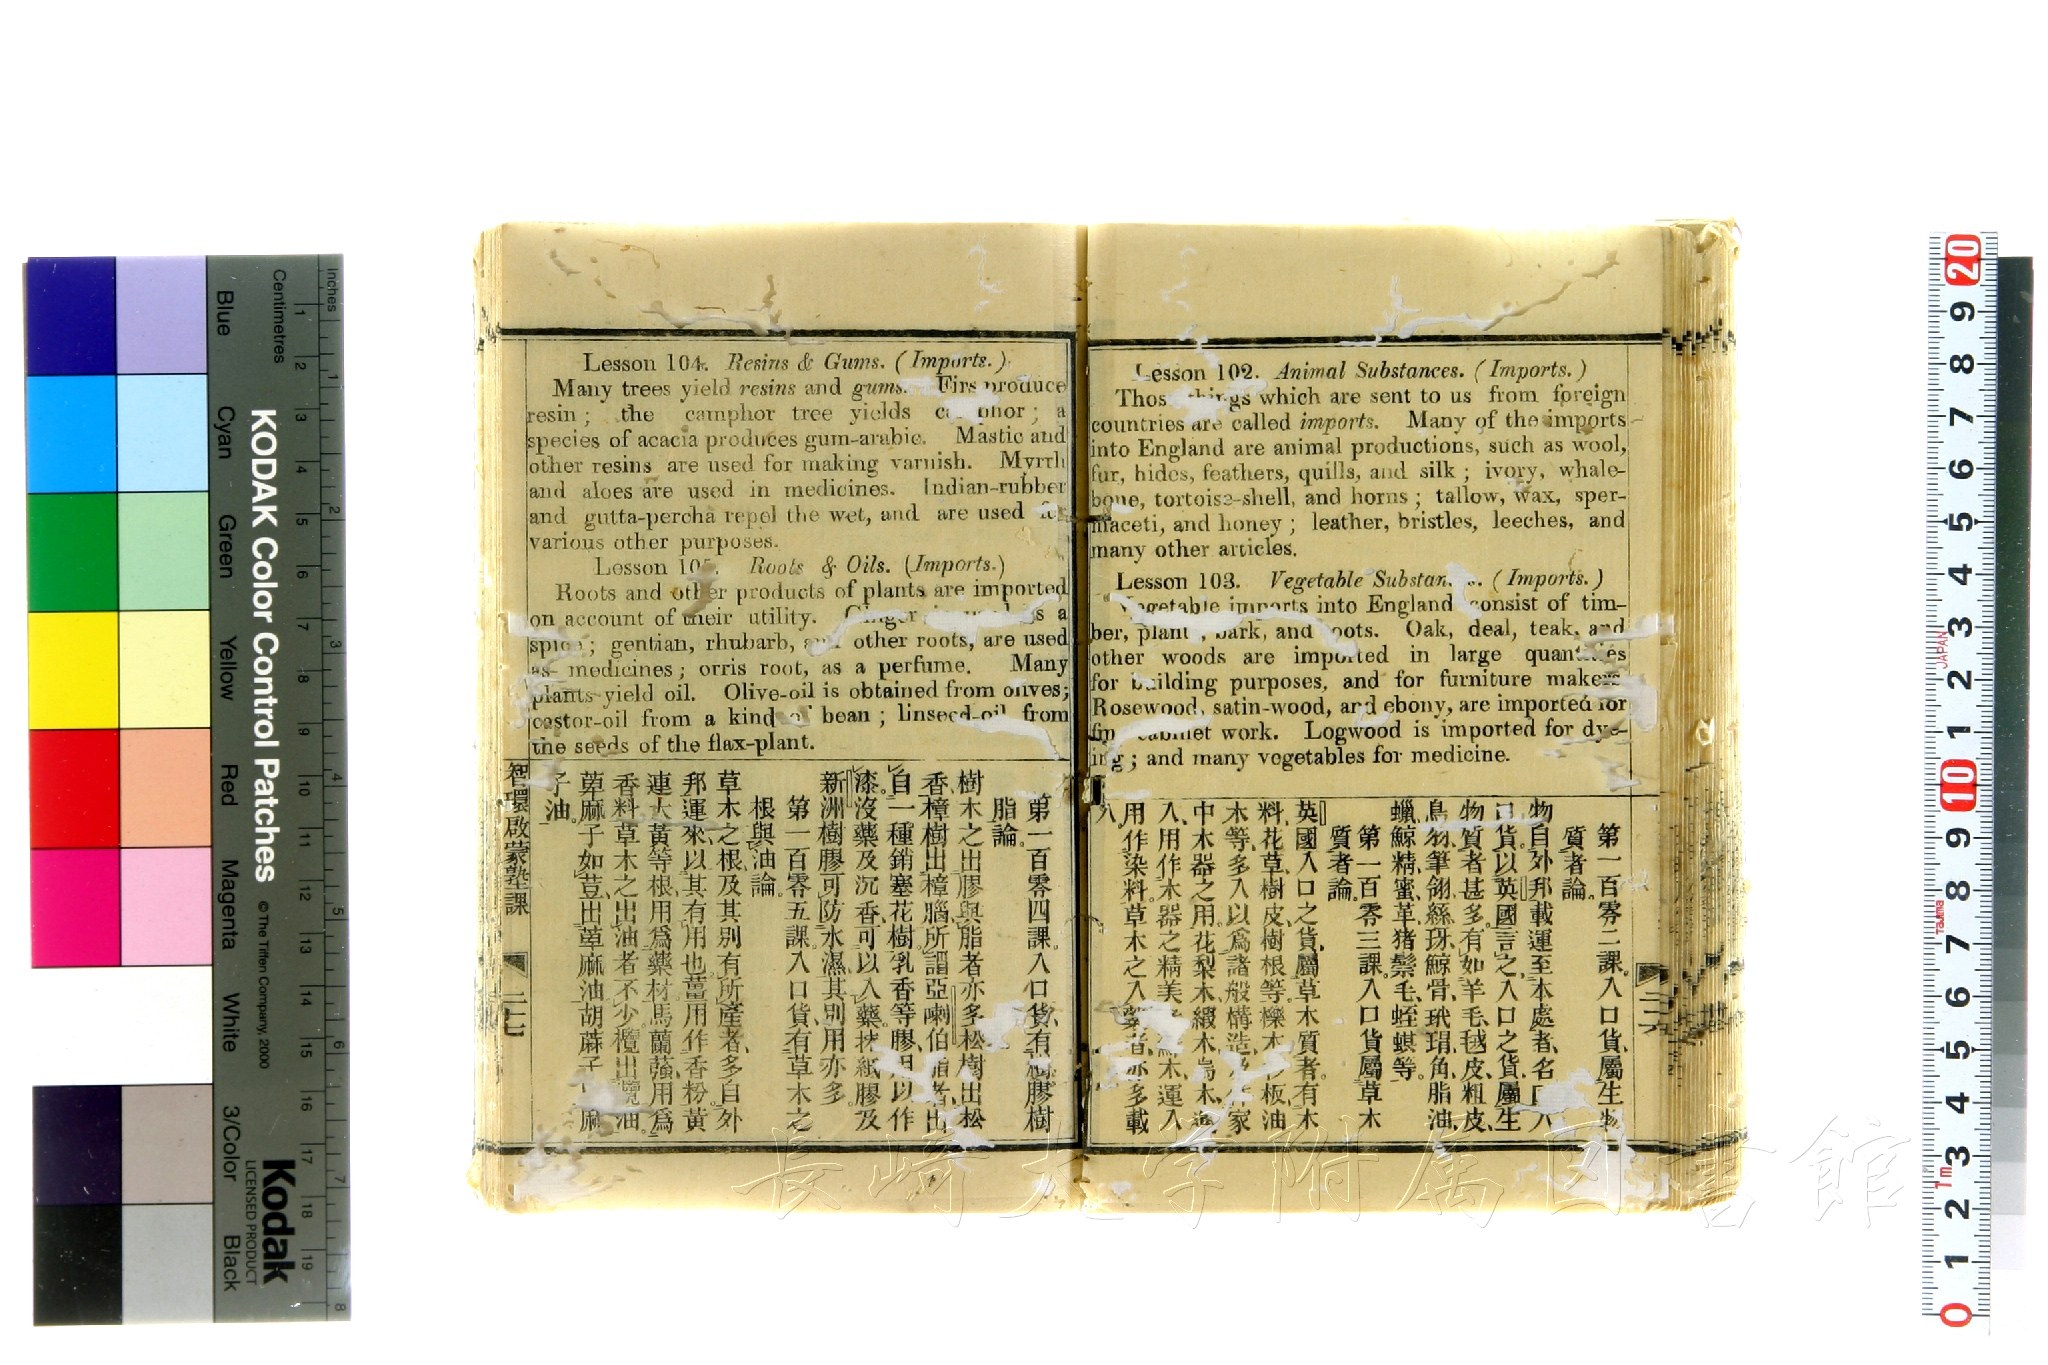 Lesson 102. Animal Substances. (Imports.)
things which are sent to us from foreign
countries are called imports. Many of the imports
into England are animal productions, such as wool,
fur, hides, feathers, quills, and silk; ivory, whale-
bone, tortoise-shell, and horns; tallow, wax, sper-
maceti, and honey; leather, bristles, leeches, and
many other articles.
Lesson 103. Vegetable (Imports.)
Vegetable imports into England consist of tim-
ber, bark, and roots. Oak, deal, teak, and
other woods are imported in large quantities
for building purposes, and for furniture makers
Rosewood, satin-wood, and ebony, are imported for
cabinet work. Logwood is imported for dye-
ing; and many vegetables for medicine.
第一百零二課入口貨屬生物
質者論
物自外邦載運至本處者名
貨以英國言之入口之貨屬生
物質者甚多有如羊毛毧皮粗皮
鳥羽筆翎絲玡鯨骨玳瑁角脂油
蠟鯨精蜜革猪鬃毛蛭蜞等
第一百零三課入口貨屬草木
質者論
英國入口之貨屬草木質者有木
料花草樹皮樹根等櫟木杉板油
木等多入以爲諸般構造及作家
中木器之用花梨木緞木烏木
入用作木器之精美 木運入
用作染料草木之入藥者亦多載
入
二六
Lesson 104. Resins & Gums. (Imports.)
Many trees yield resins and gums. Firs produce
resin; the camphor tree yields camphor; a
species of acacia produces gum-arabic. Mastic and
other resins are used for making varnish. Myrrh
and aloes are used in medicines. Indian-rubber
and gutta-percha repel the wet, and are used for
various other purposes.
Lesson 105. Roots & Oils. (Imports.)
Roots and other products of plants are imported
on account of their utility. Ginger is used as a
spice; gentian, rhubarb, and other roots, are used
as medicines; orris root, as a perfume. Many
plants yield oil. Olive-oil is obtained from olives;
castor-oil from a kind of bean; linseed-oil from
the seeds of the flax-plant.
第一百零四課入口貨有樹膠樹
脂論
樹木之出膠與脂者亦多松樹出松
香樟樹出樟腦所謂亞喇伯脂者出
自一種銷塞花樹乳香等膠用以作
漆沒藥及沉香可以入藥 紙膠及
新洲樹膠可防水濕其別用亦多
第一百零五課入口貨有草木之
根與油論
草木之根及其別有所產者多自外
邦運來以其有用也薑用作香粉黃
連大黃等根用爲藥材馬蘭薑用爲
香料草木之出油者不少欖出欖油
萆麻子如荳出萆麻油胡蔴子 麻
子油
智環啟蒙塾課
二七
長崎大学附属図書館
KODAK Color Control Patches
© The Tiffen Company, 2000
Kodak
LICENSED PRODUCT
Inches
1 2 3 4 5 6 7 8
Centimetres
1 2 3 4 5 6 7 8 9 10 11 12 13 14 15 16 17 18 19
Blue
Cyan
Green
Yellow
Red
Magenta
White
3/Color
Black
20
9
8
7
6
5
4
3
JAPAN
2
1
10
9
8
7
6
5
4
3
1m
2
1
0